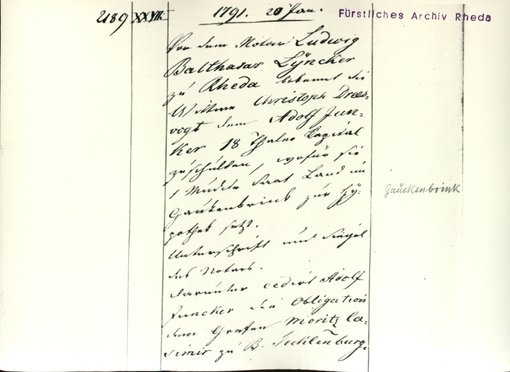 2189 XXVII. 1791. 20 Jan.
Fürstliches Archiv Rheda
Vor dem Notar Ludwig
Balthasar Lÿncker
zu Rheda bekennt die
Wittwe Christoph Drees-
vogt dem Adolf Jun-
ker 18 Thaler Capital
zu schulden, wofür sie
1 Müdde Saat Land im
Gaukenbrink zur Hy-
pothek setzt.
Unterschrift und Siegel
des Notars.
Darunter cedirt Adolf
Juncker die Obligation
dem Grafen Moritz Ca-
simir zu B. Tecklenburg.
Gaukenbrink